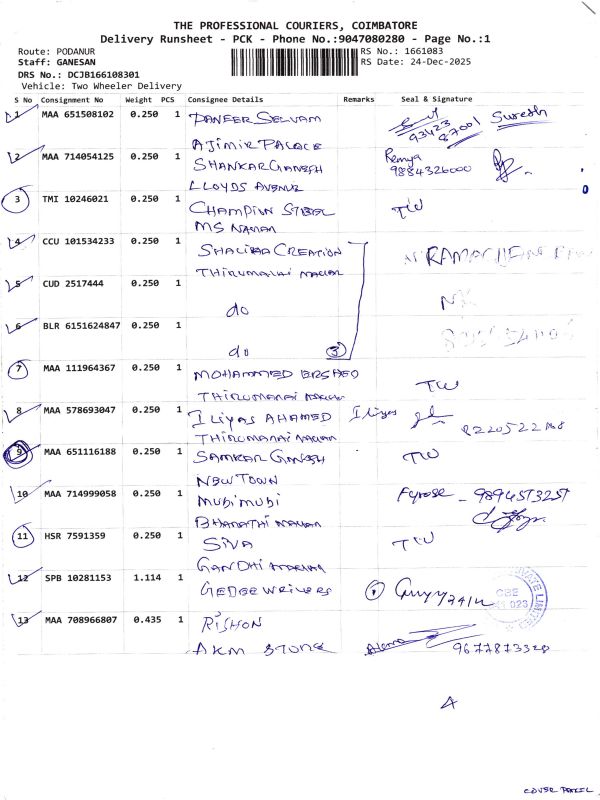 THE PROFESSIONAL COURIERS, COIMBATORE
Delivery Runsheet - PCK - Phone No.:9047080280 - Page No.:1
Route: PODANUR
RS No.: 1661083
Staff: GANESAN
RS Date: 24-Dec-2025
DRS No.: DCJB166108301
Vehicle: Two Wheeler Delivery
S No Consignment No Weight PCS Consignee Details Remarks Seal & Signature
1 MAA 651508102 0.250 1 PANEER SELVAM Suresh
93423 87001
AJIMIR PALACE
2 MAA 714054125 0.250 1 SHANKAR GANESH Remya
9884326000
LLOYDS AVENUE
3 TMI 10246021 0.250 1 CHAMPION STEEL
MS NAGAR
4 CCU 101534233 0.250 1 CREATION
THIRUMALAI NAGAR
5 CUD 2517444 0.250 1
do
6 BLR 6151624847 0.250 1
do 3
7 MAA 111964367 0.250 1 MOHAMMED
THIRUMALAI NAGAR
8 MAA 578693047 0.250 1 ILIYAS AHAMED Iliyas
THIRUMALAI NAGAR
9 MAA 651116188 0.250 1 GANESH
NEW TOWN
10 MAA 714999058 0.250 1 MUBIMUBI Fyrose - 9894573257
BHARATHI NAGAR
11 HSR 7591359 0.250 1 SIVA
GANDHI NAGAR
12 SPB 10281153 1.114 1
CBE
023
13 MAA 708966807 0.435 1 RISHON
AKM STORE 9677873328
4
COVER PARCEL